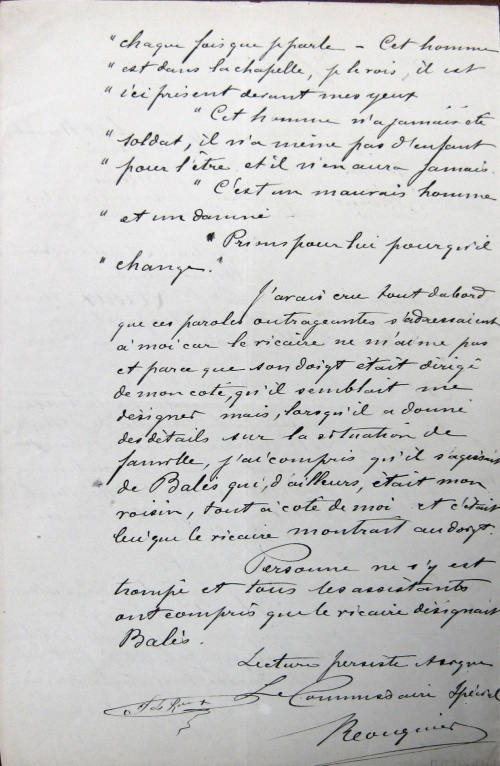 " chaque fois que je parle – Cet homme
" est dans la chapelle, je le vois, il est
" ici présent devant mes yeux
" Cet homme n'a jamais été
" soldat, il n'a même pas d'enfant
" pour l'être et il n'en aura jamais.
" C'est un mauvais homme
" et un damné
" Prions pour lui pour qu'il
" change."
J'avais cru tout d'abord
que ces paroles outrageantes s'adressaient
à moi car le vicaire ne m'aime pas
et parce que son doigt était dirigé
de mon coté, qu'il semblait me
désigner mais, lorsqu'il a donné
des détails sur la situation de
famille, j'ai compris qu'il s'agissait
de Balès qui, d'ailleurs, était mon
voisin, tout à coté de moi et c'était
lui que le vicaire montrait au doigt.
Personne ne s'y est
trompé et tous les assistants
ont compris que le vicaire désignait
Balès.
Lecture persiste et signe
Le Commissaire Spécial